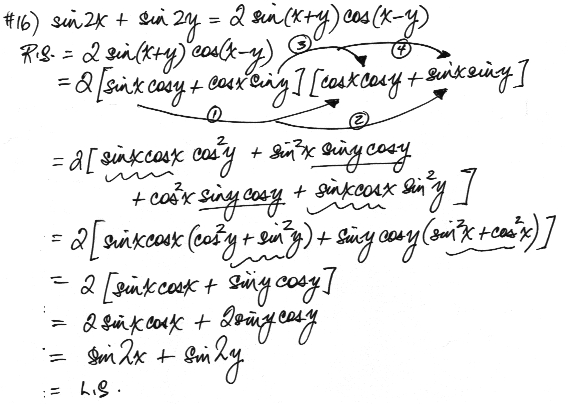 #16) sin2x + sin2y = 2 sin(x+y) cos(x-y)
R.S. = 2 sin(x+y) cos(x-y) ③ ④
= 2[sinx cosy + cosx siny][cosx cosy + sinx siny]
① ②
= 2[sinx cosx cos²y + sin²x siny cosy
+ cos²x siny cosy + sinx cosx sin²y]
= 2[sinx cosx (cos²y + sin²y) + siny cosy (sin²x + cos²x)]
= 2[sinx cosx + siny cosy]
= 2 sinx cosx + 2 siny cosy
= sin2x + sin2y
= L.S.